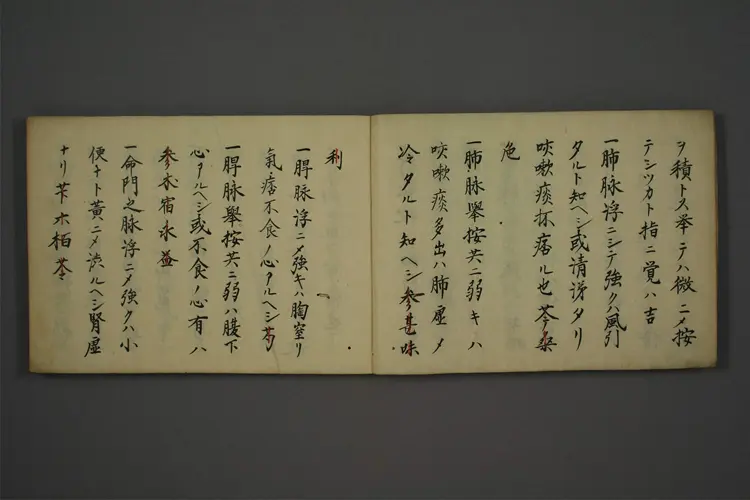 ヲ積トス挙テハ微ニメ按
テシツカト指ニ覚ハ吉
一肺脉浮ニシテ強クハ風引
タルト知ヘシ或清涕タリ
咳嗽痰抔痞ル也芩桑
色
一肺脉挙按共ニ弱キハ
咳嗽痰多出ハ肺虚メ
冷タルト知ヘシ参甚味
利
一脾脉浮ニメ強キハ胸窒リ
氣痞不食ノ心アルヘシ芎
一脾脉擧按共ニ弱ハ腹下
心アルヘシ或不食ノ心有ハ
参朮宿氷益
一命門之脉浮ニメ強クハ小
便ナト黄ニメ渋ルヘシ腎虚
ナリ芐朩栢芩